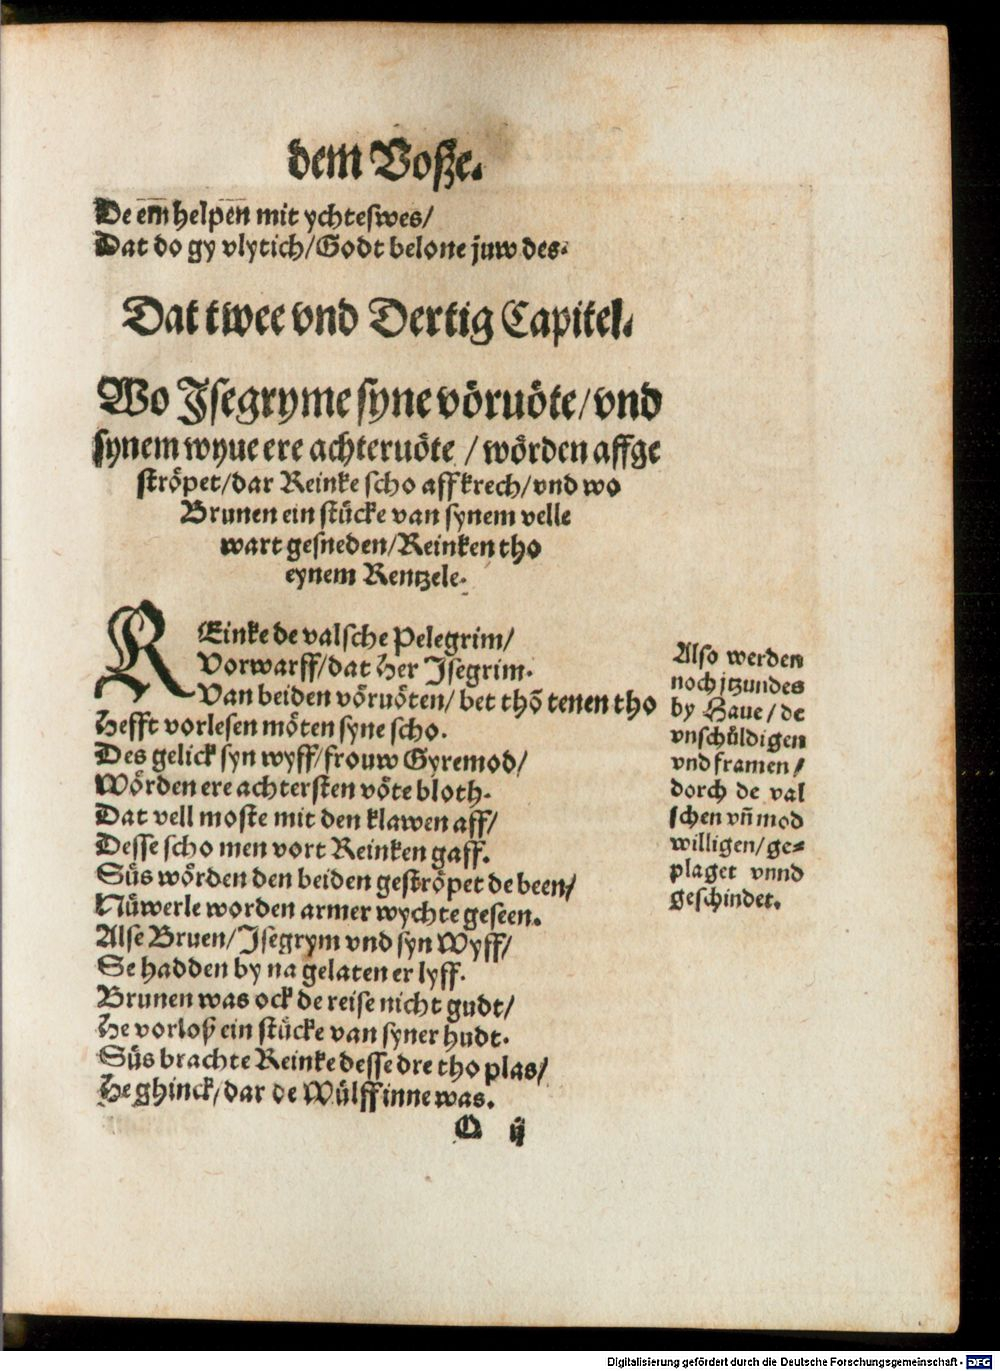 dem Voſze.
De em̄ helpen̄ mit ychteſwes/
Dat do gy vlytich/Godt belone juw des.
Dat twee vnd Dertig Capitel.
Wo Jſegryme ſyne vöruöte/vnd
ſynem wyue ere achteruöte / wörden affge
ſtröpet/dar Reinke ſcho aff krech/vnd wo
Brunen ein ſtücke van ſynem velle
wart geſneden/Reinken tho
eynem Rentzele.
REinke de valſche Pelegrim/
Vorwarff/dat Her Jſegrim.
Van beiden vöruöten/ bet thō tenen tho
Hefft vorleſen möten ſyne ſcho.
Des gelick ſyn wyff/frouw Gyremod/
Wörden ere achterſten vöte bloth.
Dat vell moſte mit den klawen aff/
Deſſe ſcho men vort Reinken gaff.
Süs wörden den beiden geſtröpet de been/
Nüwerle worden armer wychte geſeen.
Alſe Bruen/Jſegrym vnd ſyn Wyff/
Se hadden by na gelaten er lyff.
Brunen was ock de reiſe nicht gudt/
He vorloß ein ſtücke van ſyner hudt.
Süs brachte Reinke deſſe dre tho plas/
He ghinck/dar de Wülffinne was.
Alſo werden
noch jtzundes
by Haue/ de
vnſchüldigen
vnd framen/
dorch de val
ſchen vn̄ mod
willigen/ ge⸗
plaget vnnd
geſchindet.
O ij
Digitalisierung gefördert durch die Deutsche Forschungsgemeinschaft - DFG